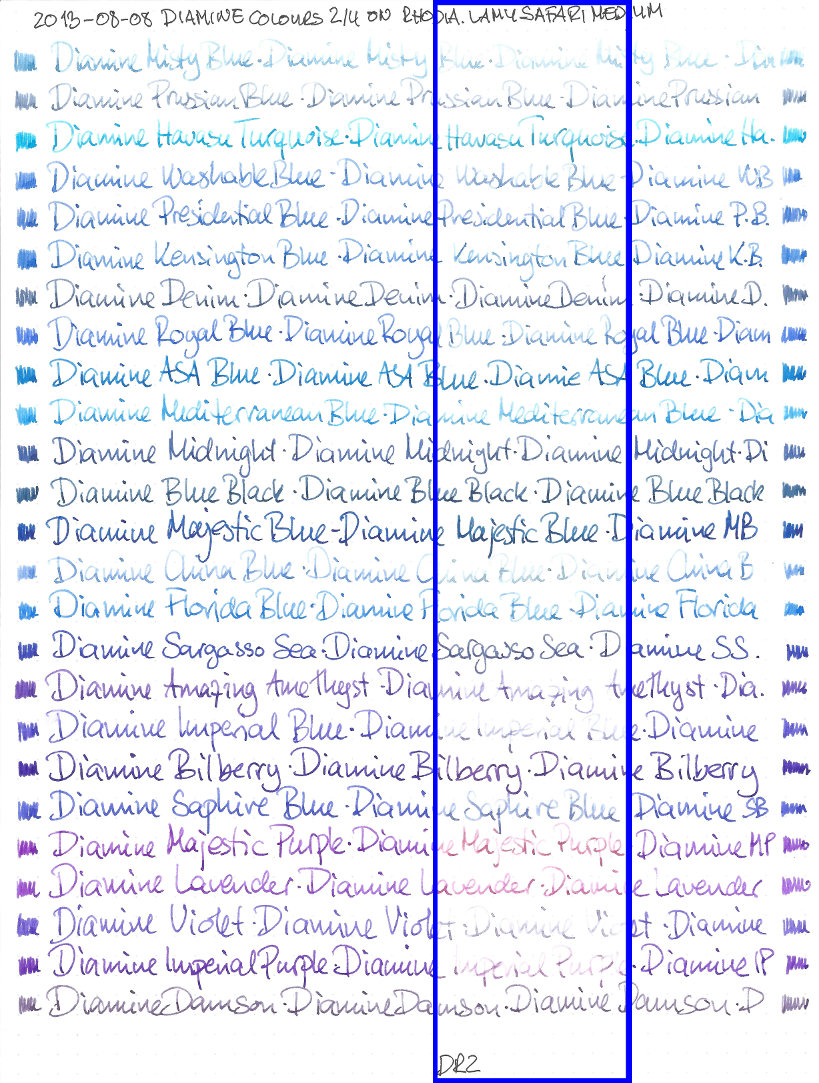 2013-08-08 DIAMINE COLOURS 2/4 ON RHODIA. LAMY SAFARI MEDIUM
Diamine Misty Blue · Diamine Misty Blue · Diamine Misty Blue · Diam
Diamine Prussian Blue · Diamine Prussian Blue · Diamine Prussian
Diamine Havasu Turquoise · Diamine Havasu Turquoise · Diamine Ha.
Diamine Washable Blue · Diamine Washable Blue · Diamine W.B
Diamine Presidential Blue · Diamine Presidential Blue · Diamine P.B.
Diamine Kensington Blue · Diamine Kensington Blue · Diamine K.B.
Diamine Denim · Diamine Denim · Diamine Denim · Diamine D.
Diamine Royal Blue · Diamine Royal Blue · Diamine Royal Blue · Diam
Diamine ASA Blue · Diamine ASA Blue · Diamie ASA Blue · Diam
Diamine Mediterranean Blue · Diamine Mediterranean Blue · Dia
Diamine Midnight · Diamine Midnight · Diamine Midnight · Di
Diamine Blue Black · Diamine Blue Black · Diamine Blue Black
Diamine Majestic Blue - Diamine Majestic Blue · Diamine MB
Diamine China Blue · Diamine China Blue · Diamine China B
Diamine Florida Blue · Diamine Florida Blue · Diamine Florida
Diamine Sargasso Sea · Diamine Sargasso Sea · Diamine SS.
Diamine Amazing Amethyst · Diamine Amazing Amethyst · Dia.
Diamine Imperial Blue · Diamine Imperial Blue · Diamine
Diamine Bilberry · Diamine Bilberry · Diamine Bilberry
Diamine Saphire Blue · Diamine Saphire Blue · Diamine SB
Diamine Majestic Purple · Diamine Majestic Purple · Diamine MP
Diamine Lavender · Diamine Lavender · Diamine Lavender
Diamine Violet · Diamine Violet · Diamine Violet · Diamine
Diamine Imperial Purple · Diamine Imperial Purple · Diamine IP
Diamine Damson · Diamine Damson · Diamine Damson · D
DR2